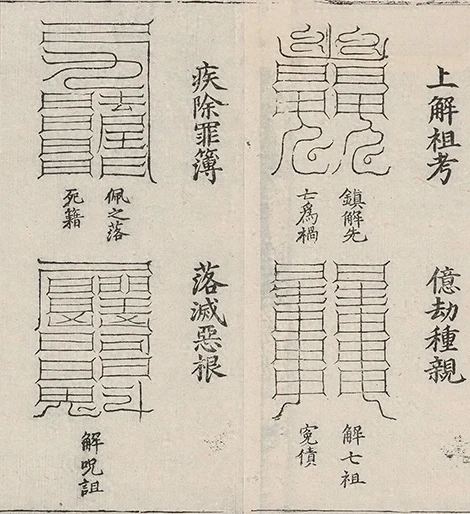 上解祖考
鎮解先
亡爲禍
億劫種親
解七祖
冤債
疾除罪簿
佩之落
死籍
落滅惡根
解呪詛